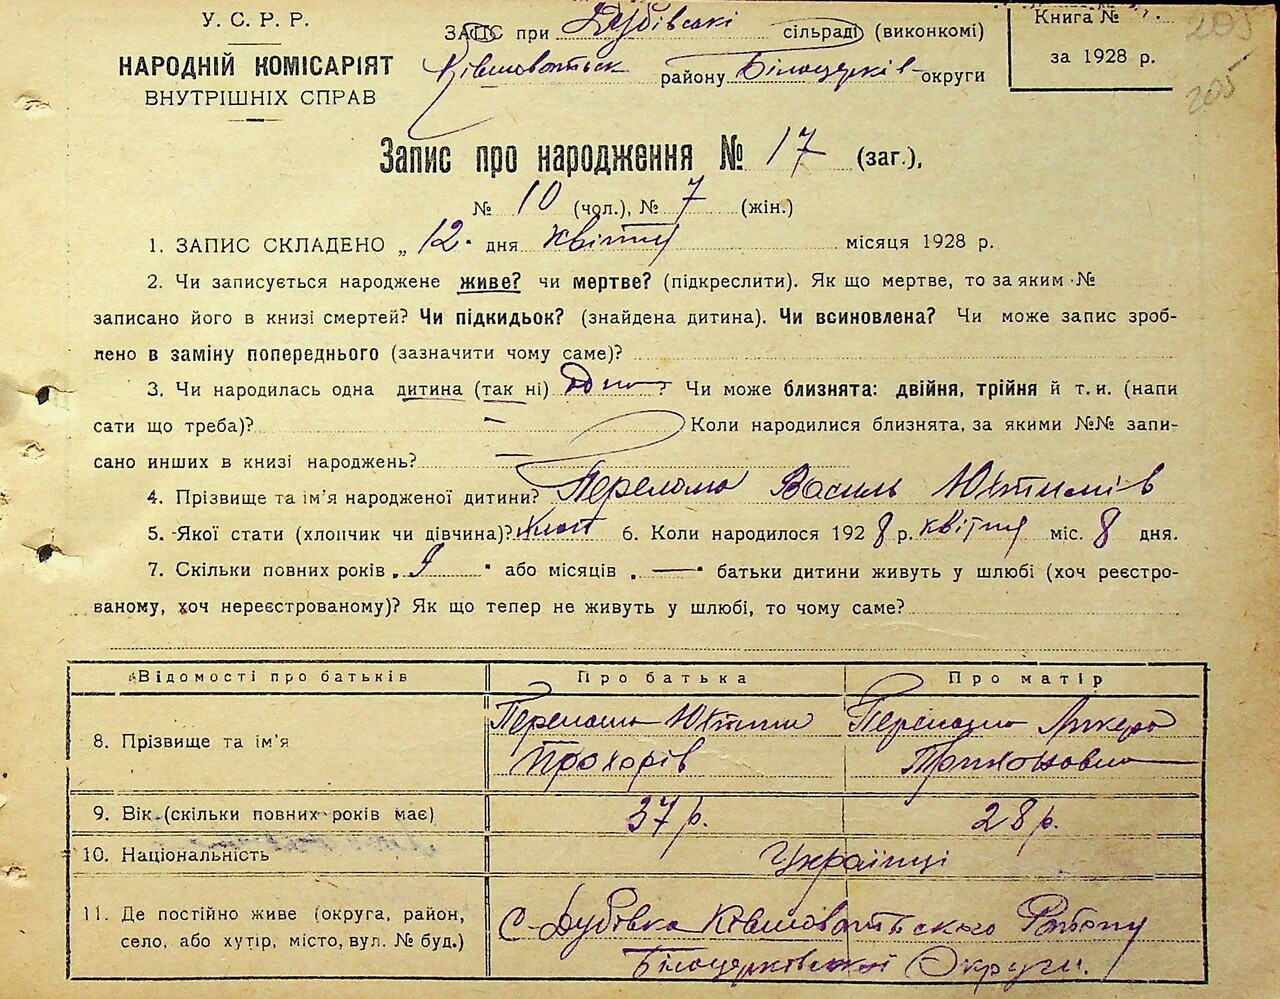 У. С. Р. Р.
НАРОДНІЙ КОМІСАРІЯТ
ВНУТРІШНІХ СПРАВ
ЗАПИС при Дубівські сільраді (виконкомі)
Ківшоватськ району Білоцерків округи
Книга №
за 1928 р.
205
205
Запис про народження № 17 (заг.),
№ 10 (чол.), № 7 (жін.)
1. ЗАПИС СКЛАДЕНО „ 12 " дня квітня місяця 1928 р.
2. Чи записується народжене живе? чи мертве? (підкреслити). Як що мертве, то за яким №
записано його в книзі смертей? Чи підкидьок? (знайдена дитина). Чи всиновлена? Чи може запис зроб-
лено в заміну попереднього (зазначити чому саме)?
3. Чи народилась одна дитина (так ні) Одна? Чи може близнята: двійня, трійня й т. и. (напи
сати що треба)? — Коли народилися близнята, за якими №№ запи-
сано инших в книзі народжень? —
4. Прізвище та ім'я народженої дитини? Перелома Василь Юхтимів
5. Якої стати (хлопчик чи дівчина)? хлоп 6. Коли народилося 1928 р. квітня міс. 8 дня.
7. Скільки повних років „ 9 " або місяців „ — " батьки дитини живуть у шлюбі (хоч реєстро-
ваному, хоч нереєстрованому)? Як що тепер не живуть у шлюбі, то чому саме?
Відомості про батьків Про батька Про матір
8. Прізвище та ім'я Перелома Юхтим Прохорів Перелома Ликера
9. Вік (скільки повних років має) 37 р. 28 р.
10. Національність Українці
11. Де постійно живе (округа, район,
село, або хутір, місто, вул. № буд.)
С. Дубівка Ківшоватського Району
Білоцерківської Округи.